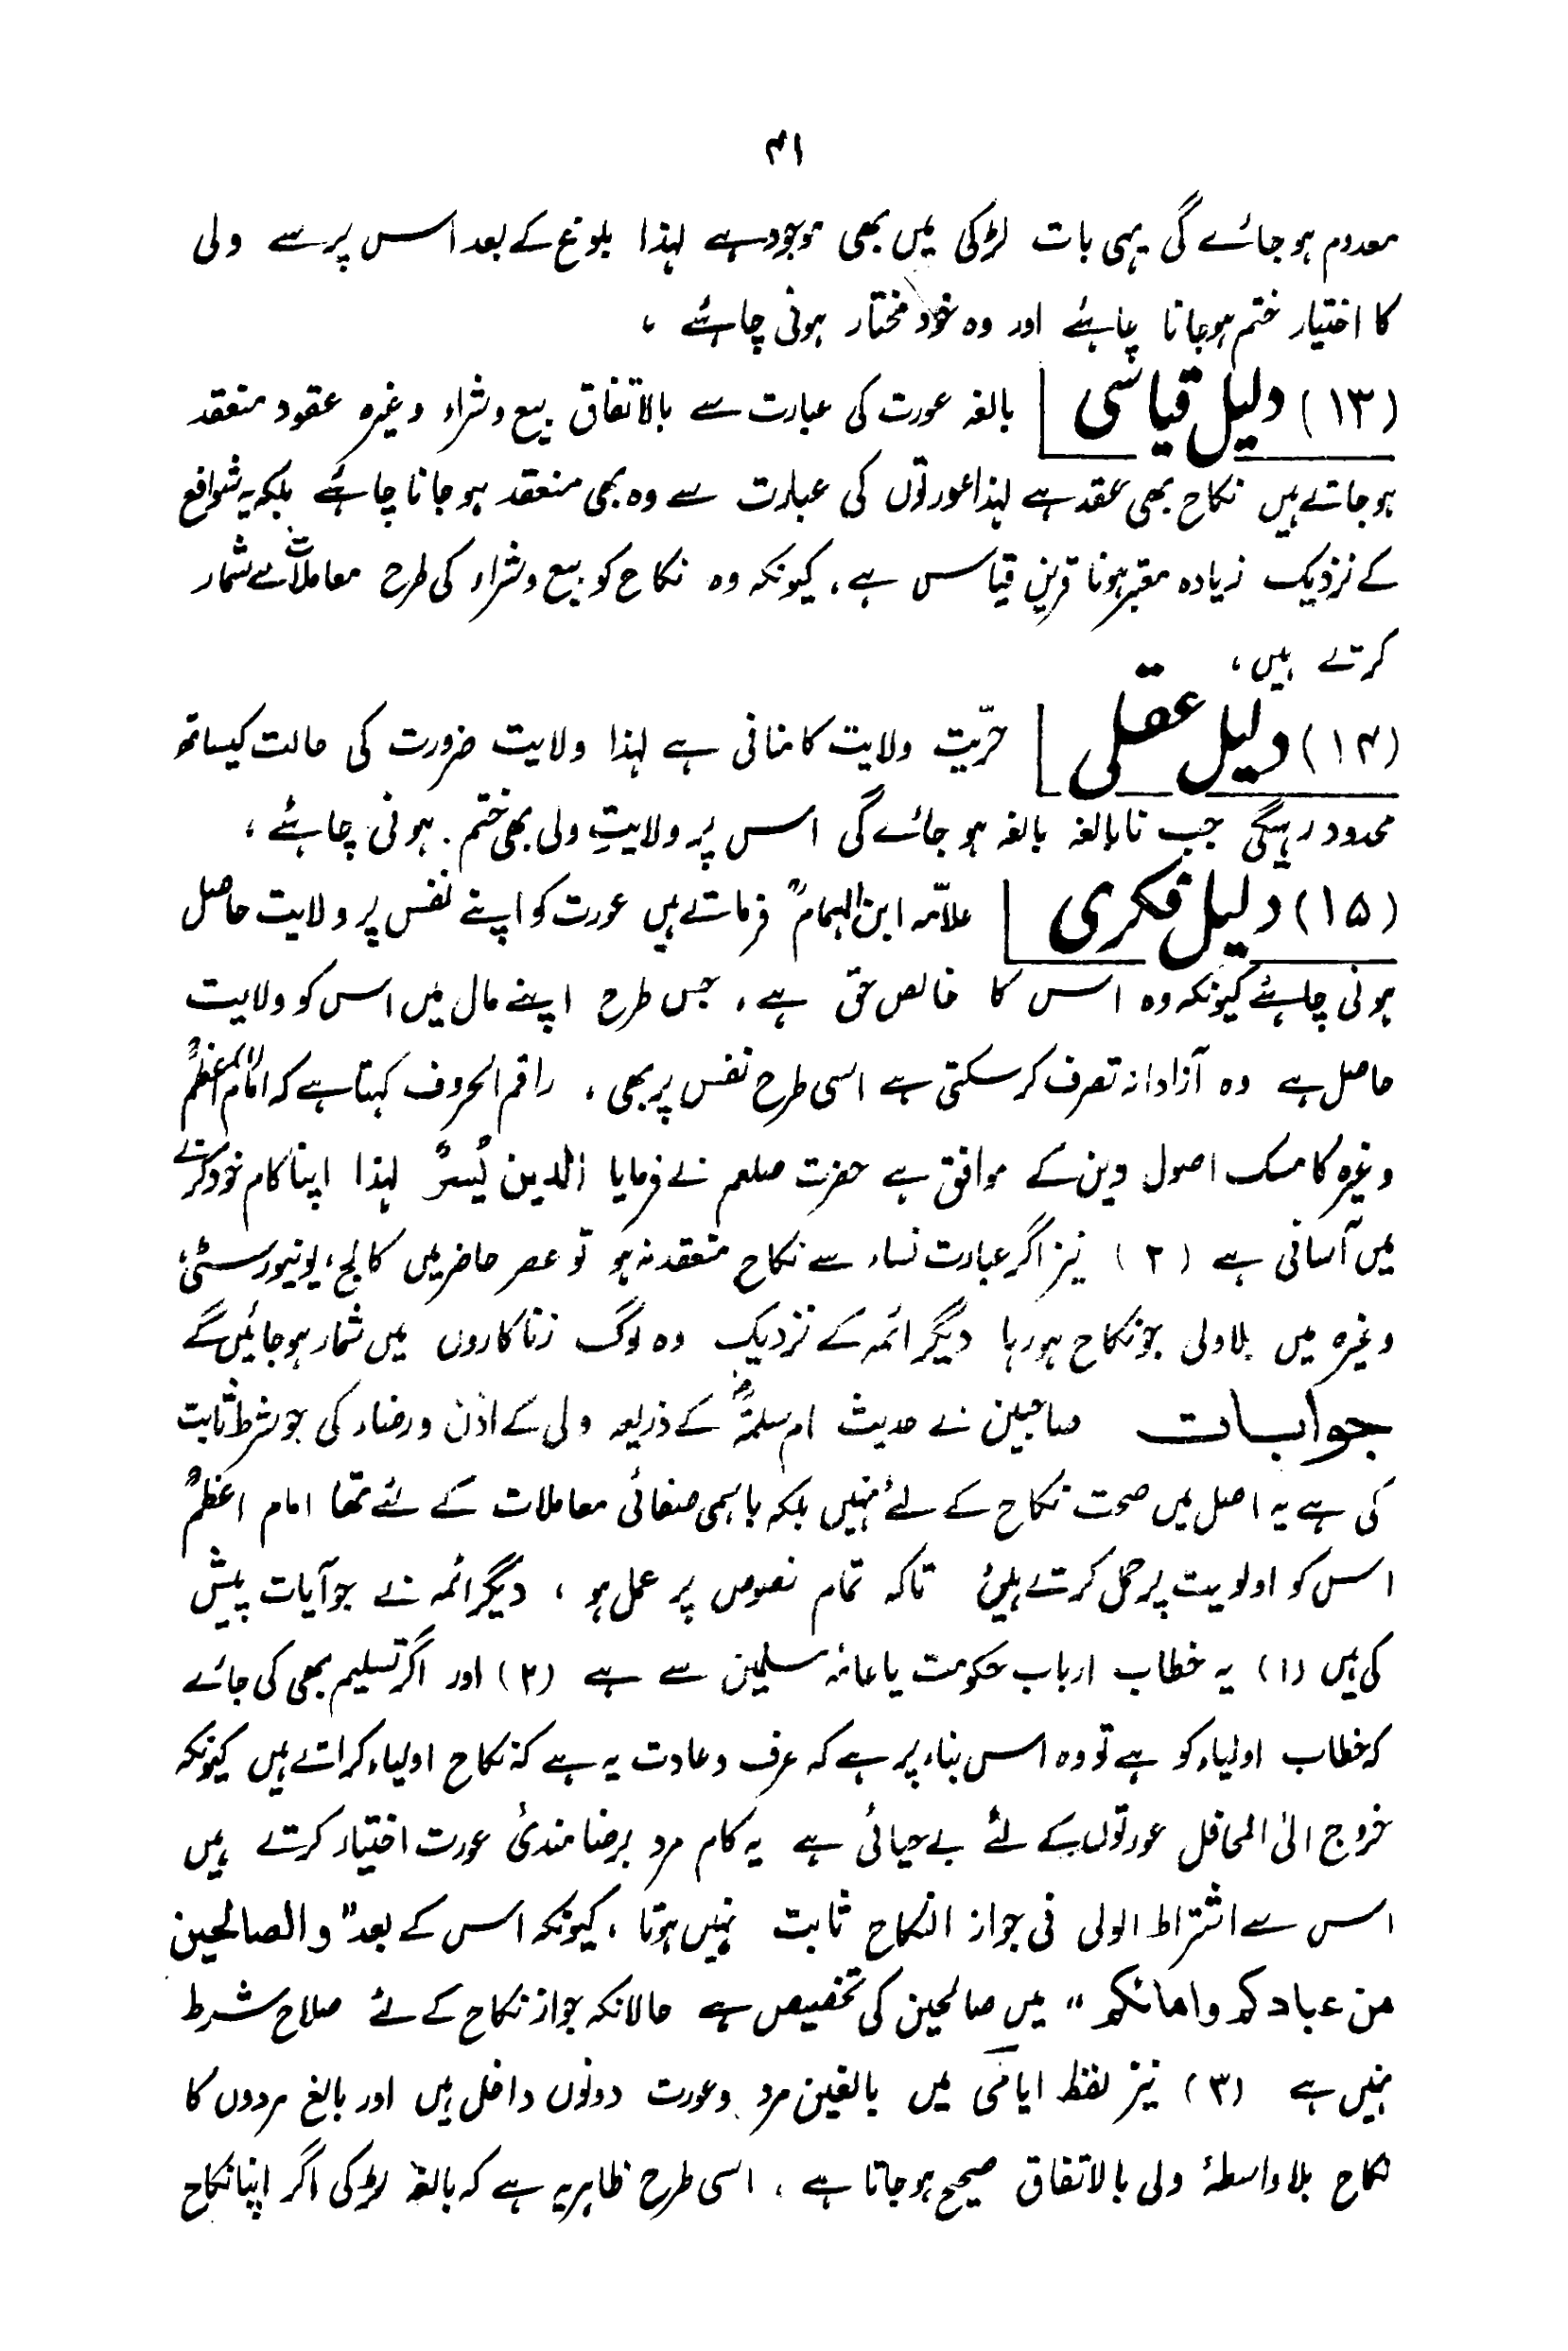 ۴۱
معدوم ہو جائے گی یہی بات لڑکی میں بھی موجود ہے لہذا بلوغ کے بعد اس پر سے ولی
کا اختیار ختم ہوجانا چاہئے اور وہ خود مختار ہونی چاہئے ،
(۱۳) دلیل قیاسی | بالغہ عورت کی عبارت سے بالاتفاق بیع وشراء وغیرہ عقود منعقد
ہوجاتے ہیں نکاح بھی عقد ہے لہذا عورتوں کی عبارت سے وہ بھی منعقد ہو جانا چاہئے بلکہ یہ شوافع
کے نزدیک زیادہ معتبر ہونا قرین قیاس ہے ، کیونکہ وہ نکاح کو بیع وشراء کی طرح معاملات سے شمار
کرتے ہیں ،
(۱۴) دلیل عقلی | حرّیت ولایت کا منافی ہے لہذا ولایت ضرورت کی حالت کیساتھ
محدود رہیگی جب نابالغہ بالغہ ہو جائے گی اس پر ولایتِ ولی بھی ختم ہونی چاہئے ،
(۱۵) دلیل فکری | علامّہ ابن الہمامؒ فرماتے ہیں عورت کو اپنے نفس پر ولایت حاصل
ہونی چاہئے کیونکہ وہ اس کا خالص حق ہے ، جس طرح اپنے مال میں اس کو ولایت
حاصل ہے وہ آزادانہ تصرف کرسکتی ہے اسی طرح نفس پر بھی ، راقم الحروف کہتا ہے کہ امام اعظمؒ
وغیرہ کا مسلک اصول دین کے موافق ہے حضرت صلعم نے فرمایا الدین یُسرٌ لہذا اپنا کام خود کرنے
میں آسانی ہے (۲) نیز اگر عبارت نساء سے نکاح منعقد نہ ہو تو عصر حاضر میں کالج ، یونیورسٹیٔ
وغیرہ میں بلا ولی جو نکاح ہو رہا دیگر ائمہ کے نزدیک وہ لوگ زناکاروں میں شمار ہوجائیں گے
جوابات صاحبین نے حدیث ام سلمۃؓ کے ذریعہ ولی کے اذن ورضاء کی جو شرط ثابت
کی ہے یہ اصل میں صحت نکاح کے لئے نہیں بلکہ باہمی صفائی معاملات کے لئے تھا امام اعظمؒ
اس کو اولویت پر حمل کرتے ہیں تاکہ تمام نصوص پر عمل ہو ، دیگر ائمہ نے جو آیات پیش
کی ہیں (۱) یہ خطاب ارباب حکومت یا عامۂ مسلمین سے ہے (۲) اور اگر تسلیم بھی کی جائے
کہ خطاب اولیاء کو ہے تو وہ اس بناء پر ہے کہ عرف وعادت یہ ہے کہ نکاح اولیاء کراتے ہیں کیونکہ
خروج الیٰ المحافل عورتوں کے لئے بے حیائی ہے یہ کام مرد برضامندئ عورت اختیار کرتے ہیں
اس سے اشتراط الولی فی جواز النکاح ثابت نہیں ہوتا ، کیونکہ اس کے بعد " والصالحین
من عبادکم وامائکم " میں صالحین کی تخصیص ہے حالانکہ جواز نکاح کے لئے صلاح شرط
نہیں ہے (۳) نیز لفظ ایامیٰ میں بالغین مرد وعورت دونوں داخل ہیں اور بالغ مردوں کا
نکاح بلا واسطۂ ولی بالاتفاق صحیح ہوجاتا ہے ، اسی طرح ظاہر یہ ہے کہ بالغہ لڑکی اگر اپنا نکاح